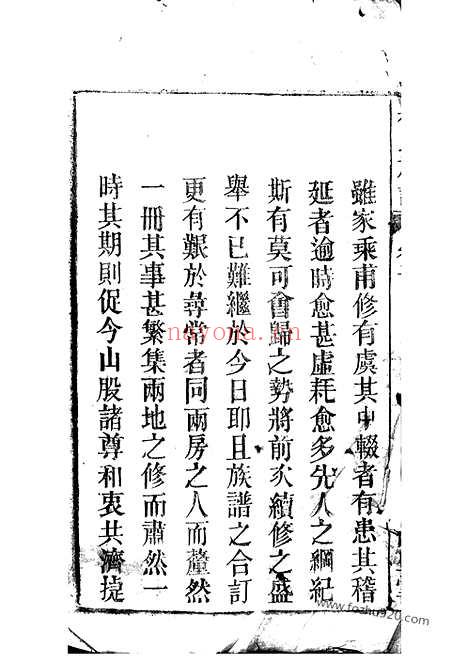 雖家乘甫修有虞其中輟者有患其稽
延者逾時愈甚虛耗愈多先人之綱紀
斯有莫可會歸之勢將前次續修之盛
舉不已難繼於今日耶且族譜之合訂
更有艱於尋常者同兩房之人而釐然
一冊其事甚繁集兩地之修而肅然一
時其期則促今山股諸尊和衷共濟提
nayona.cn
www.fozhu920.com